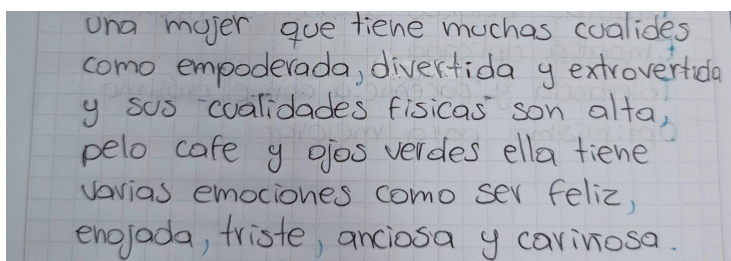 una mujer que tiene muchas cualides
como empoderada, divertida y extrovertida
y sus cualidades fisicas son alta,
pelo cafe y ojos verdes ella tiene
varias emociones como ser feliz,
enojada, triste, anciosa y cariñosa.